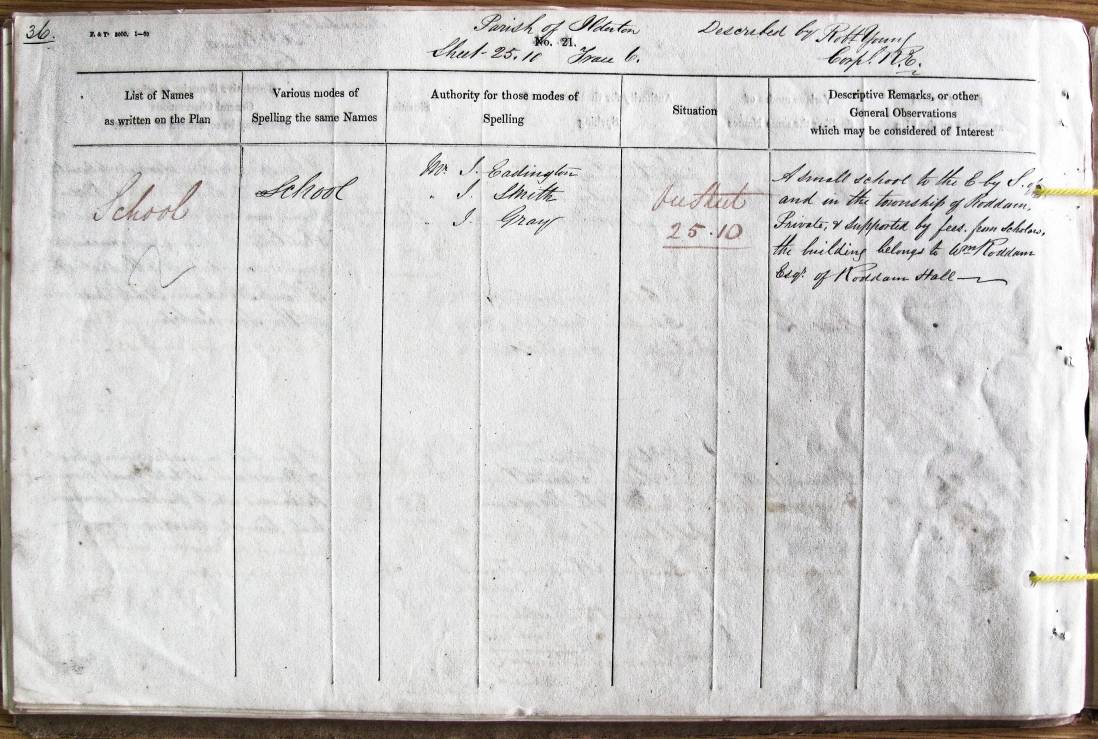 36.
Parish of Ilderton
Described by Robt Young
No. 21.
Sheet 25.10 Trace 6.
Corpl. R.E.
List of Names
as written on the Plan
Various modes of
Spelling the same Names
Authority for those modes of
Spelling
Situation
Descriptive Remarks, or other
General Observations
which may be considered of Interest
School
School
Mr. J. Eadington
" J. Smith
" J. Gray
25.10
A small school to the E by S. of
and in the township of Roddam,
Private, & supported by fees from scholars,
the building belongs to Wm Roddam
Esqr. of Roddam Hall